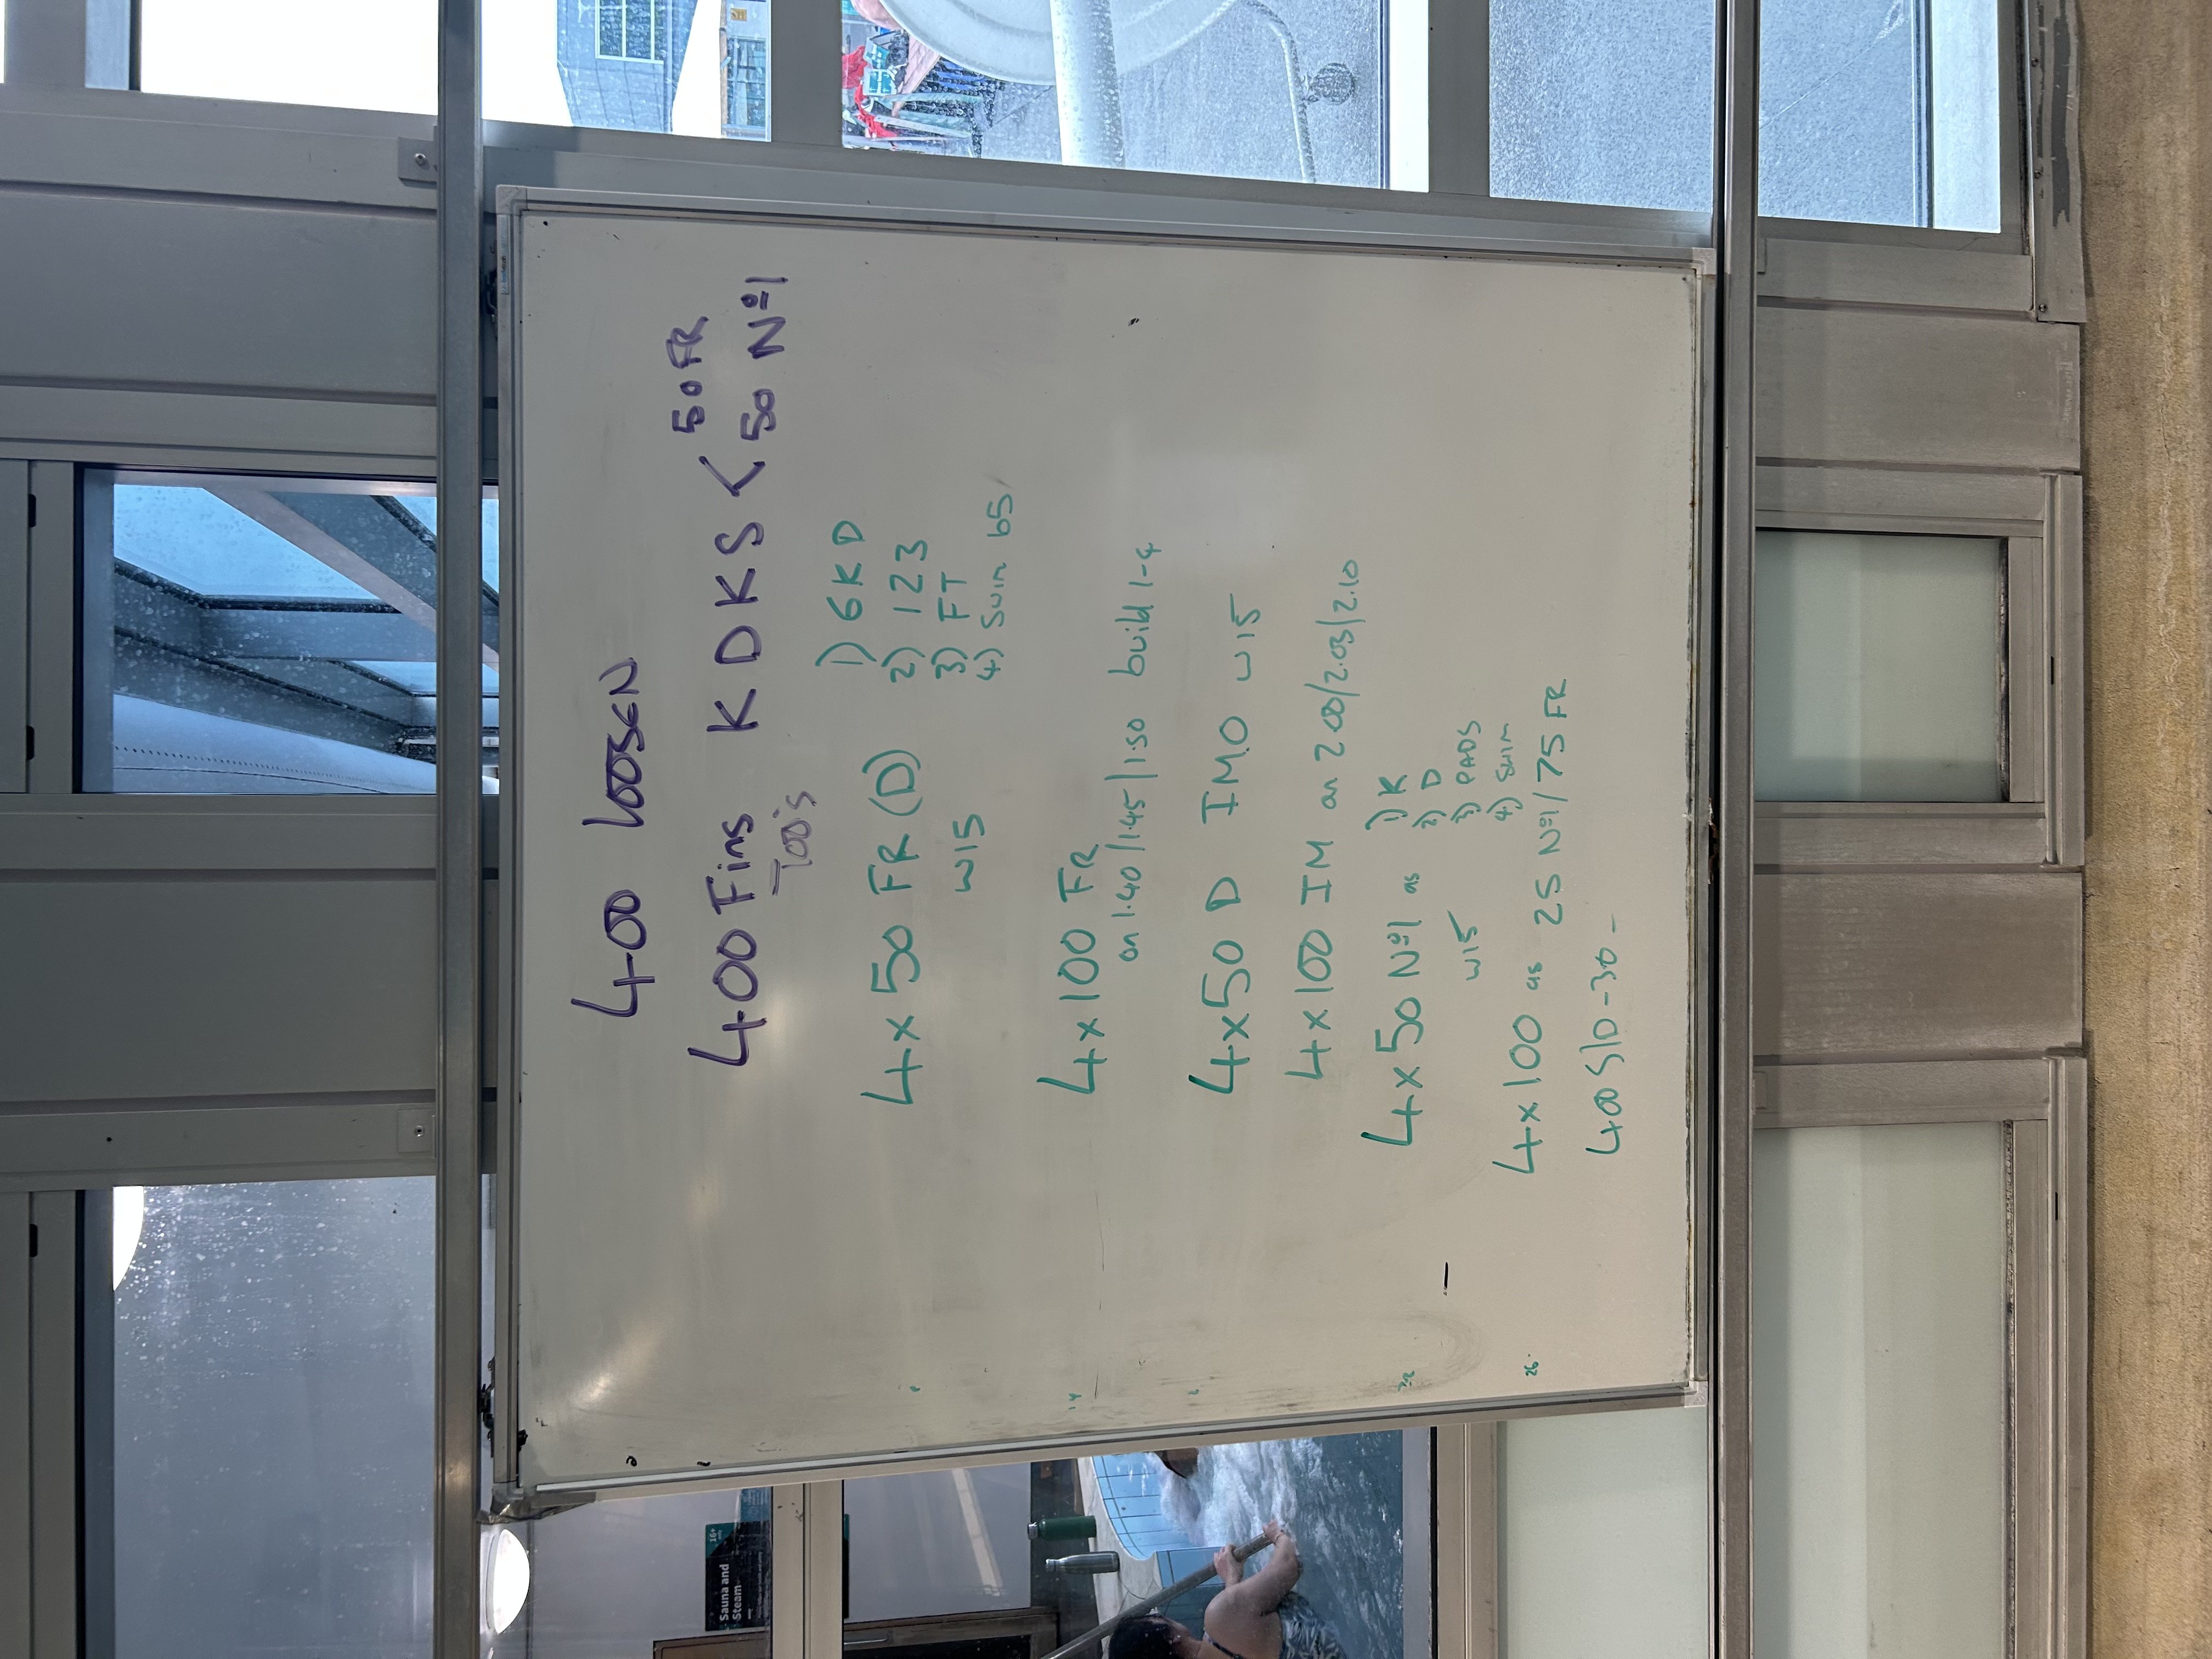 400 loosen
50 FR
400 Fins K D K S < 50 Nº1
100's
4x50 FR (D) 1) 6KD
2) 123
w15 3) FT
4) Swim b5
4x100 FR
on 1.40/1.45/1.50 build 1-4
4x50 D IMO w15
4x100 IM on 2.00/2.05/2.10
4x50 Nº1 as 1) K
2) D
w15 3) PADS
4) Swim
4x100 as 25 Nº1/75 FR
400 S/D -30-
26.
Sauna and
Steam
16+